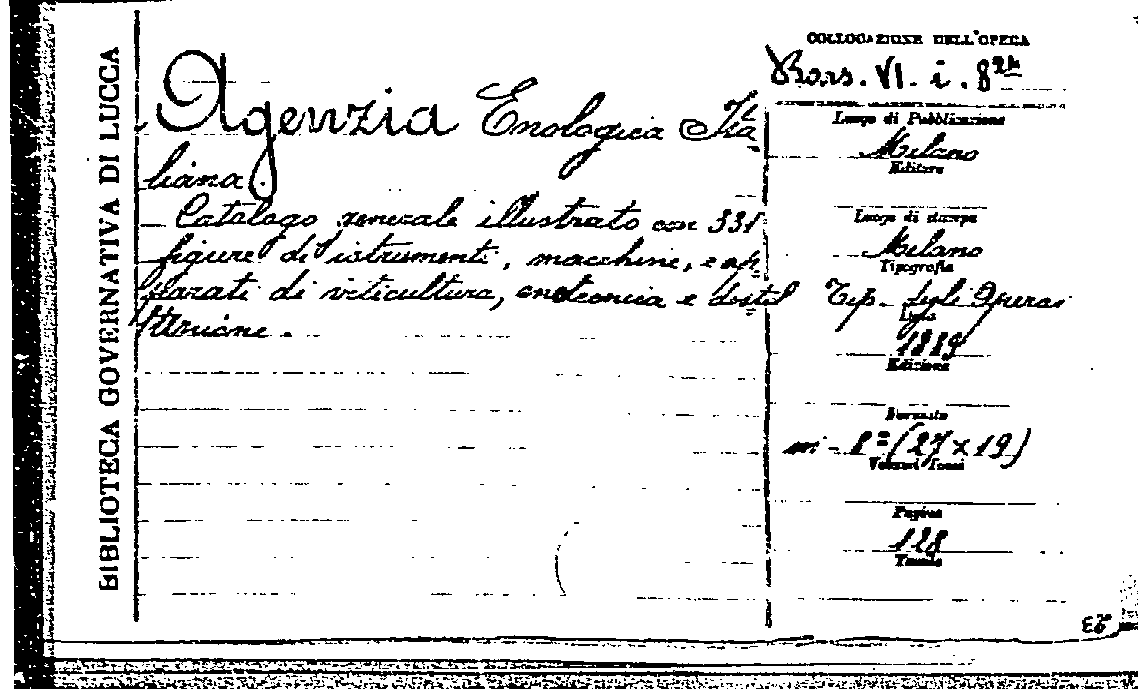 BIBLIOTECA GOVERNATIVA DI LUCCA
Agenzia Enologica Ita
liana.
Catalogo generale illustrato con 331
figure di istrumenti, macchine, e ap
parati di viticultura, enotecnia e distil
lazione.
COLLOCAZIONE DELL'OPERA
VI. i. 8
Luogo di Pubblicazione
Milano
Editore
Luogo di stampa
Milano
Tipografia
Tip. degli Operai
1889
Edizione
Formato
in-8º (27 x 19)
Volumi Tomi
Pagine
128
Tavole